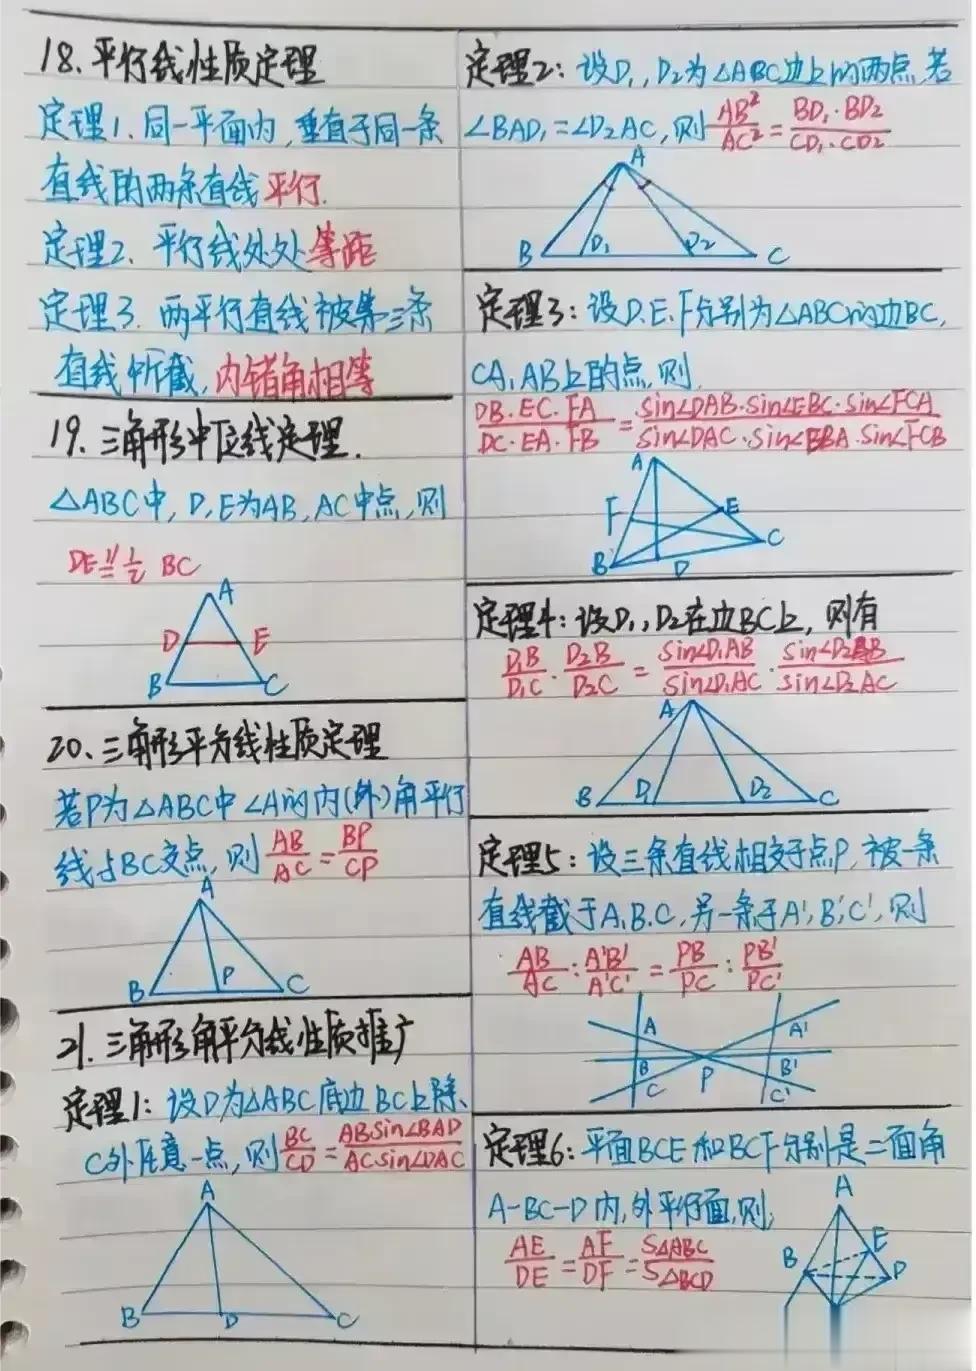 18.平行线性质定理
定理1.同一平面内,垂直于同一条
直线的两条直线平行.
定理2.平行线处处等距
定理3.两平行直线被第三条
直线所截,内错角相等
19.三角形中位线定理.
△ABC中,D,E为AB,AC中点,则
DE∥=1/2 BC
A
D E
B C
20.三角形平分线性质定理
若P为△ABC中∠A的内(外)角平行
线与BC交点,则AB/AC=BP/CP
A
B P C
21.三角形角平分线性质推广
定理1:设D为△ABC底边BC上除、
C外任意一点,则BC/CD=ABsin∠BAD/ACsin∠DAC
A
B D C
定理2:设D₁,D₂为△ABC边上的两点,若
∠BAD₁=∠D₂AC,则AB²/AC²=BD₁·BD₂/CD₁·CD₂
A
B D₁ D₂ C
定理3:设D.E.F分别为△ABC的边BC,
CA,AB上的点,则
DB·EC·FA/DC·EA·FB=sin∠DAB·sin∠EBC·sin∠FCA/sin∠DAC·sin∠EBA·sin∠FCB
A
F E
C
B D
定理4:设D₁,D₂在边BC上,则有
D₁B/D₁C·D₂B/D₂C=sin∠D₁AB/sin∠D₁AC·sin∠D₂AB/sin∠D₂AC
A
B D₁ D₂ C
定理5:设三条直线相交于点P,被一条
直线截于A.B.C,另一条于A',B',C',则
AB/AC:A'B'/A'C'=PB/PC:PB'/PC'
A A'
B P B'
C C'
定理6:平面BCE和BCF分别是二面角
A-BC-D内,外平行面,则,
AE/DE=AF/DF=S△ABC/S△BCD
A
B E
D